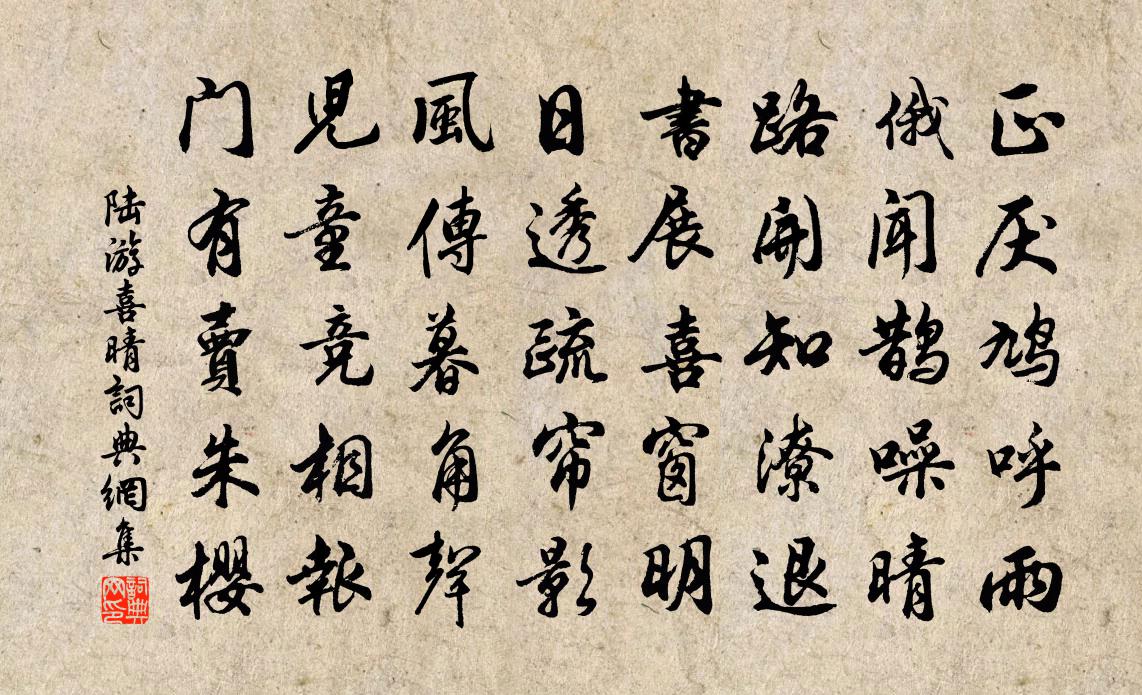 正厌鸠呼雨
俄闻鹊噪晴
路開知潦退
書展喜窗明
日透疏帘影
風傳暮角聲
児童竞相報
门有賣朱櫻
陆游喜晴詞典網集
詞典网印